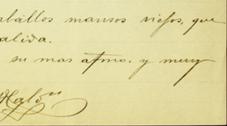 caballos mansos viejos, que
alida.
su mas afmo. y muy